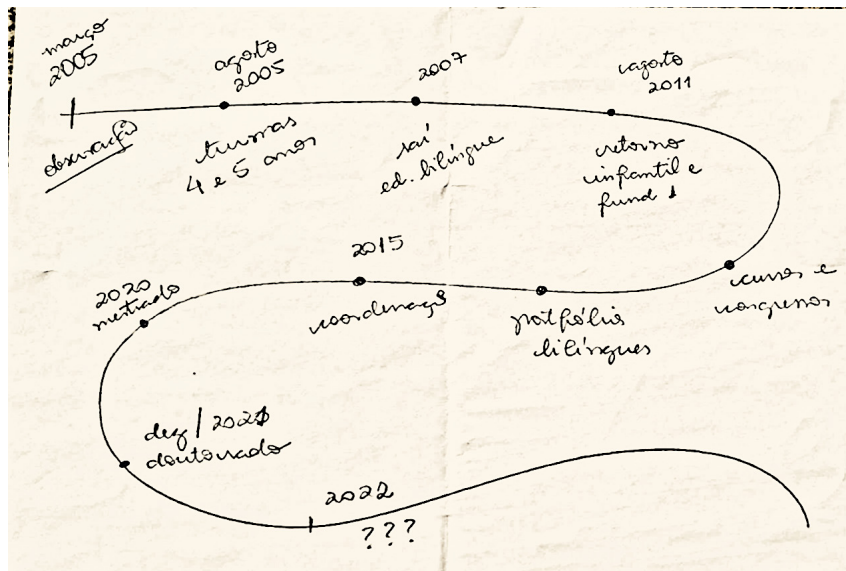 março
2005
observação
agosto
2005
turmas
4 e 5 anos
2007
saí
ed. bilíngue
agosto
2011
retorno
infantil e
fund 1
cursos e
congressos
portfólios
bilíngues
2015
coordenação
2020
mestrado
dez / 2021
doutorado
2022
???